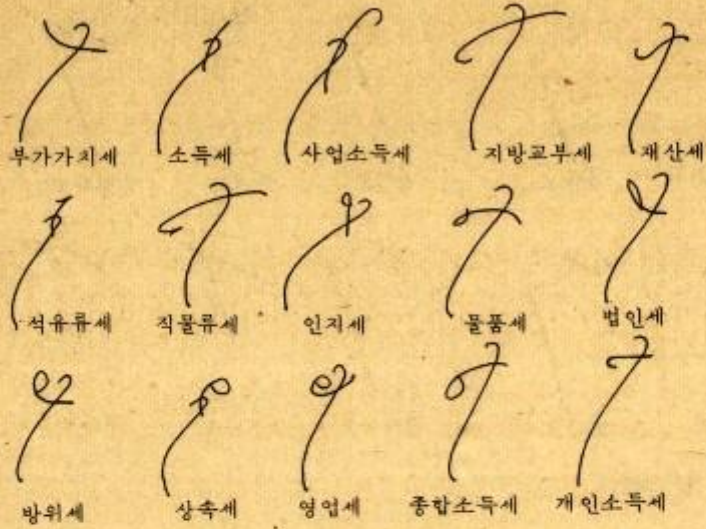 부가가치세 소득세 사업소득세 지방교부세 재산세
석유류세 직물류세 인지세 물품세 법인세
방위세 상속세 영업세 종합소득세 개인소득세